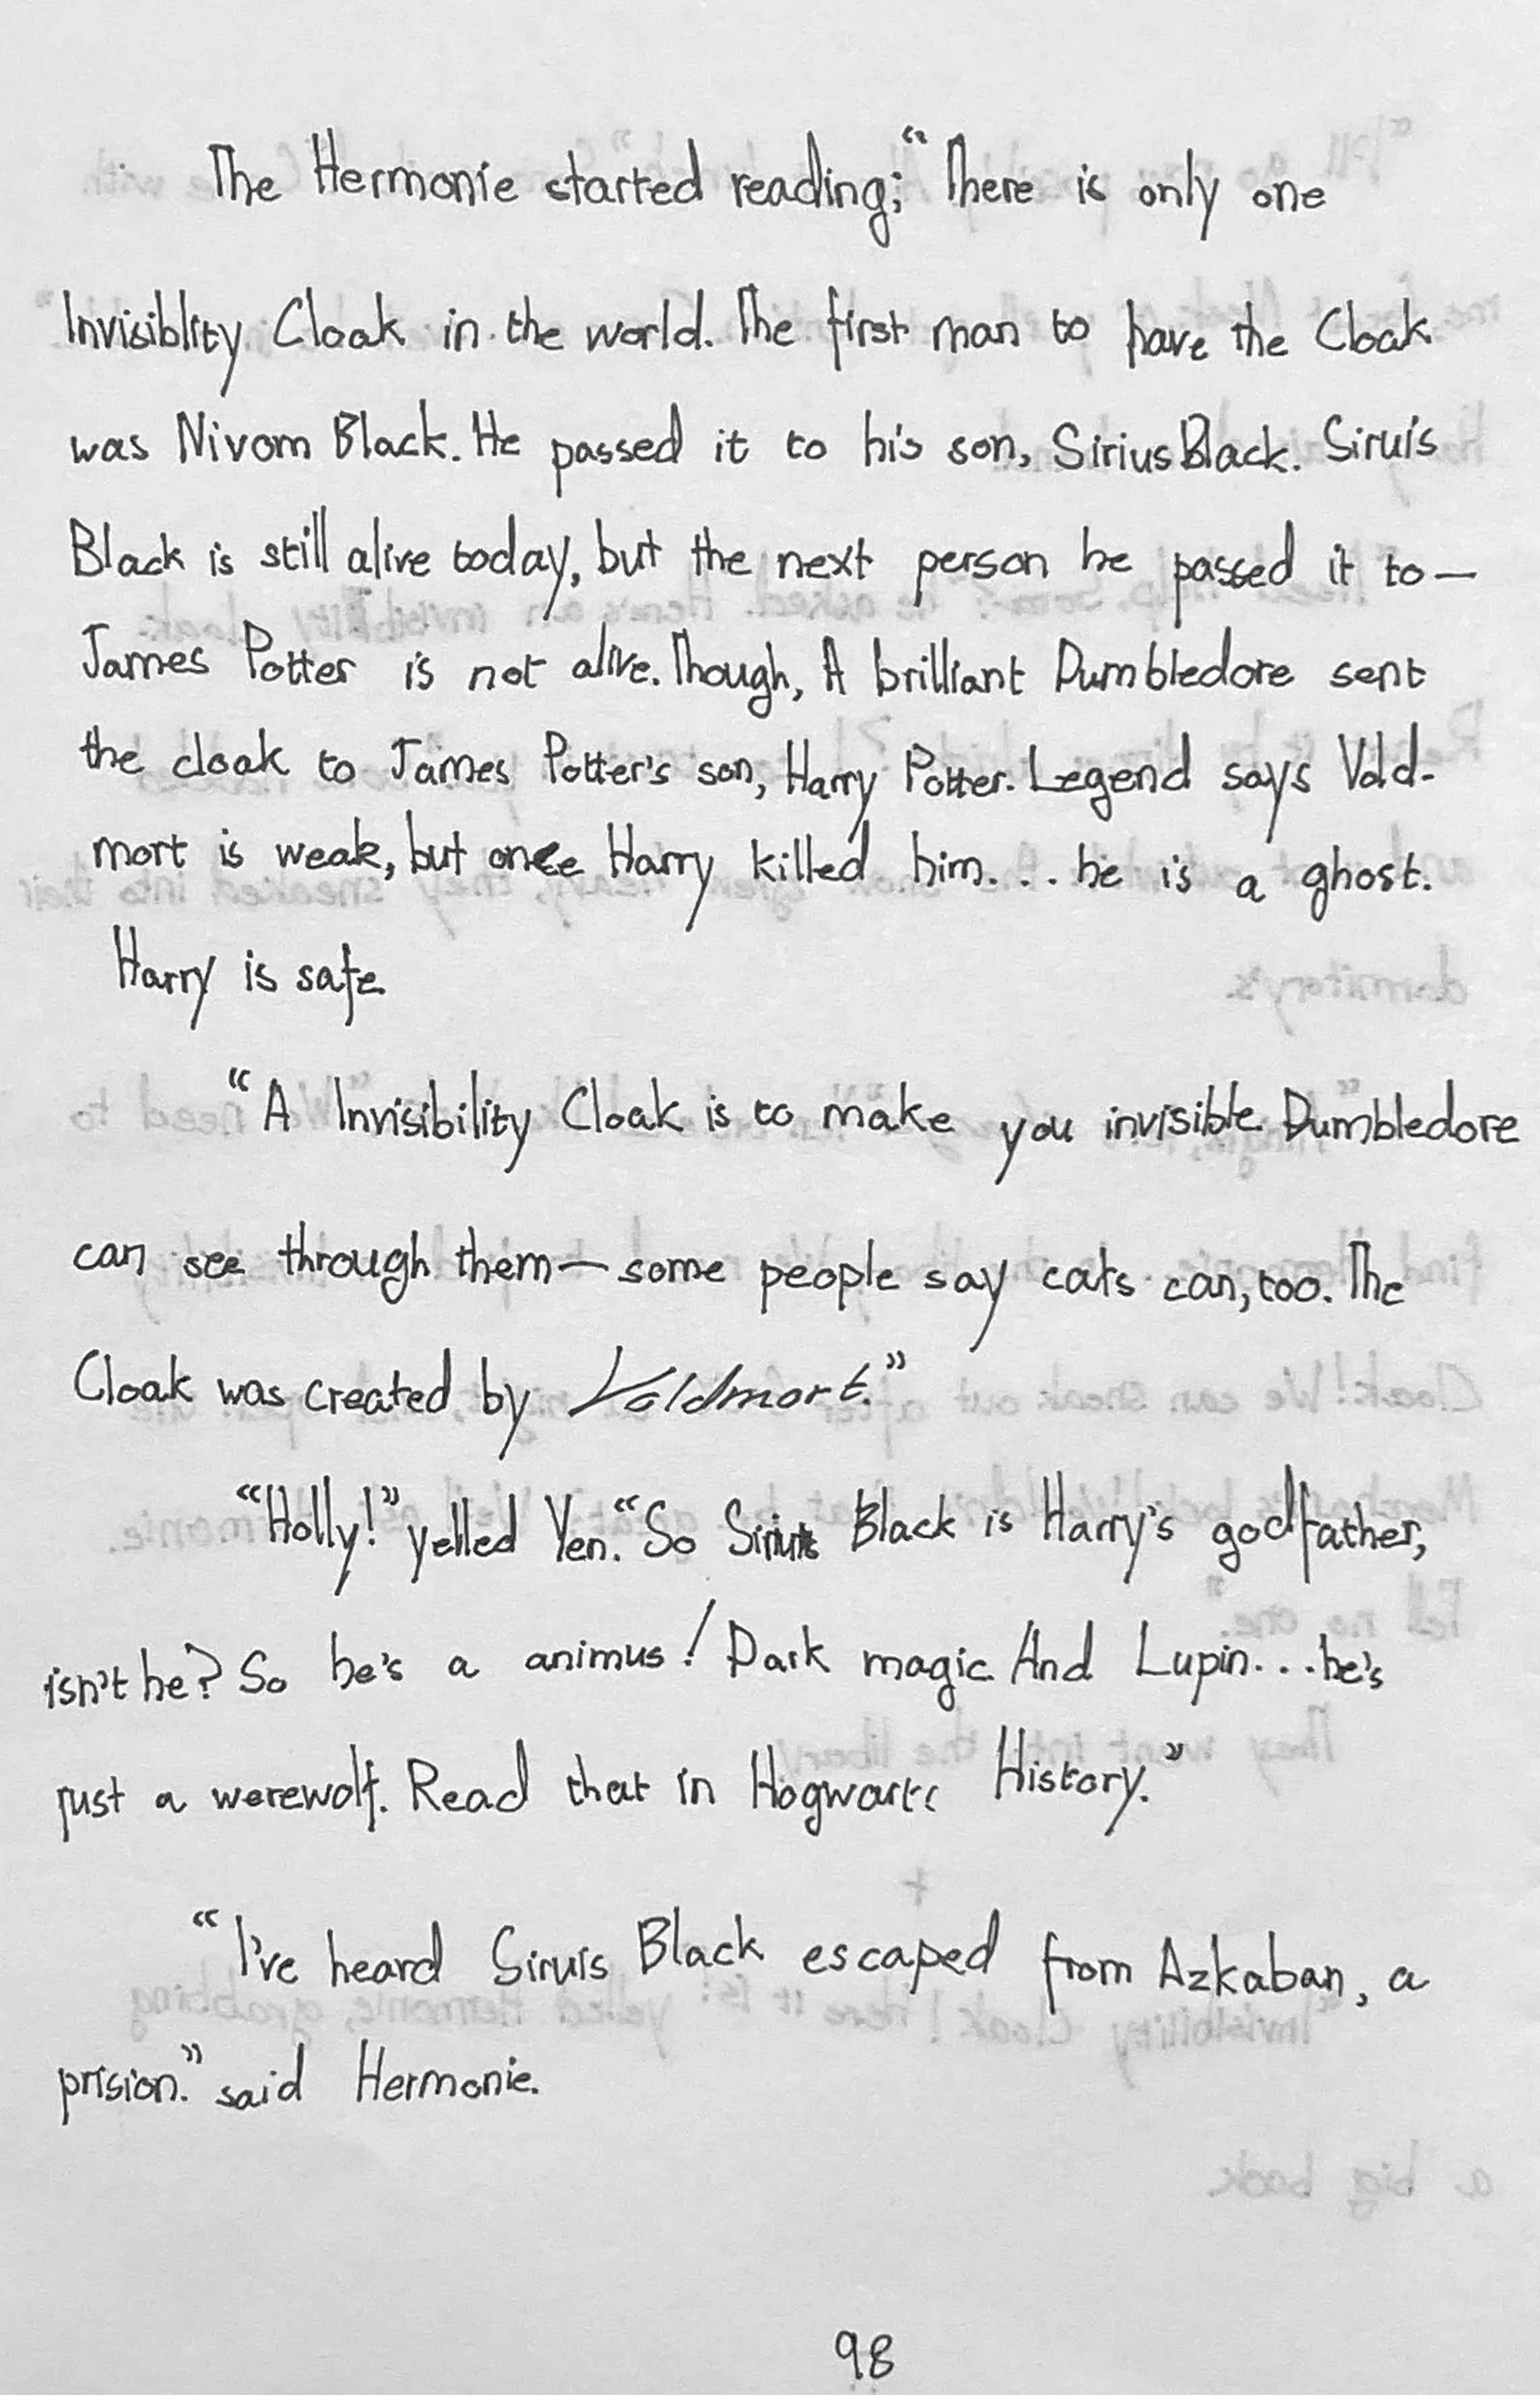 The Hermonie started reading; "There is only one
Invisiblity Cloak in the world. The first man to have the Cloak
was Nivom Black. He passed it to his son, Sirius Black. Siruis
Black is still alive today, but the next person he passed it to—
James Potter is not alive. Though, A brilliant Dumbledore sent
the cloak to James Potter's son, Harry Potter. Legend says Vold-
mort is weak, but once Harry killed him... he is a ghost.
Harry is safe.
"A Invisibility Cloak is to make you invisible. Dumbledore
can see through them— some people say cats can, too. The
Cloak was created by Voldmort."
"Holly!" yelled Yen. "So Sirius Black is Harry's godfather,
isn't he? So he's a animus! Dark magic. And Lupin... he's
just a werewolf. Read that in Hogwarts History."
"I've heard Siruis Black escaped from Azkaban, a
prision." said Hermonie.
98